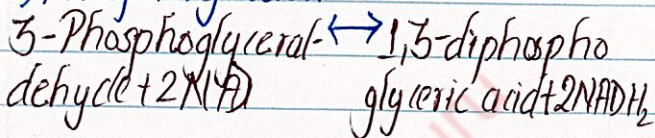 3-Phosphoglyceral- ↔ 1,3-diphospho
dehyde + 2NAD glyceric acid + 2NADH₂